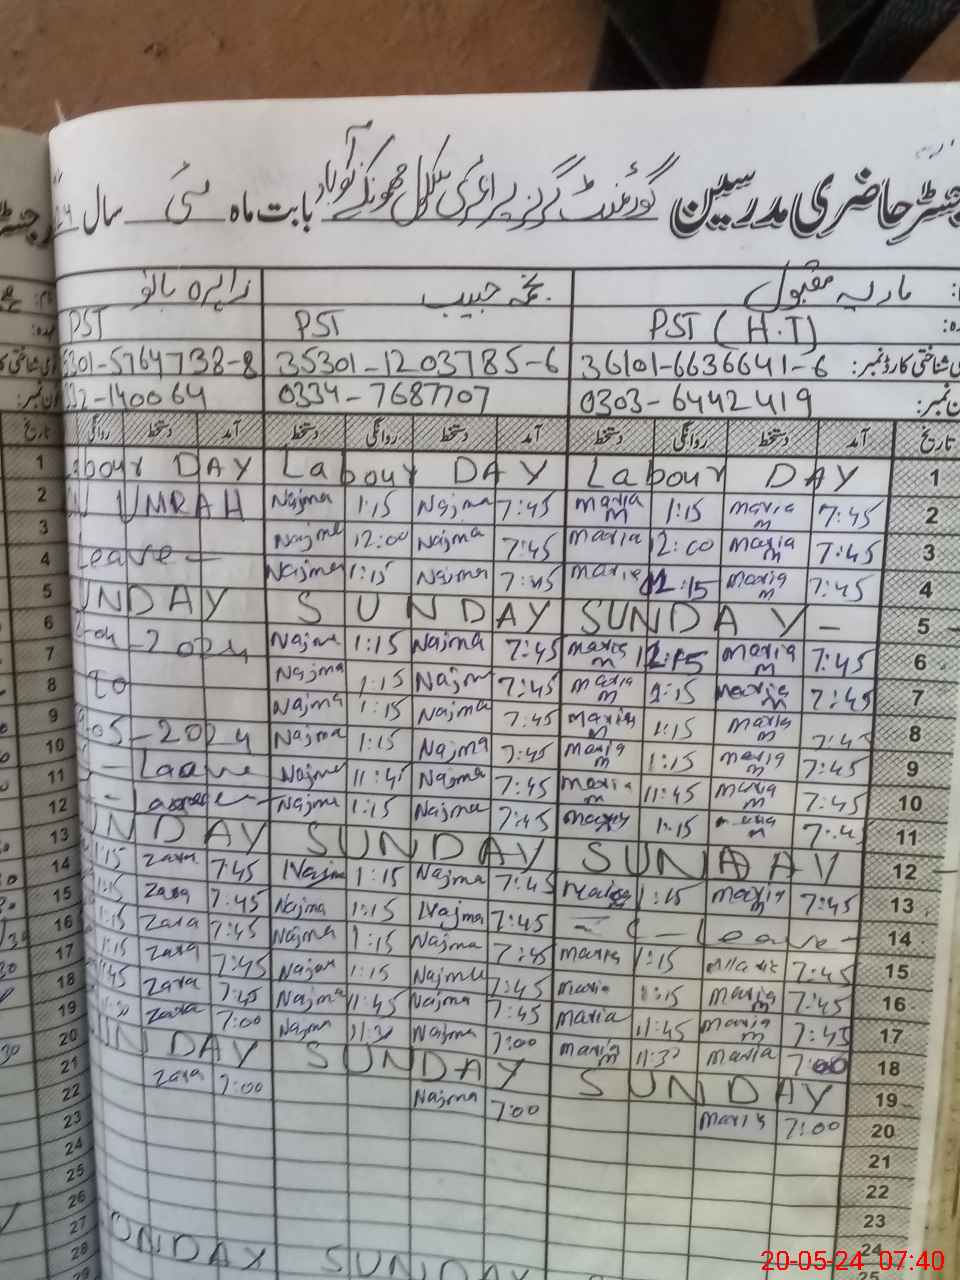 رجسٹر حاضری مدرسین گورنمنٹ گرلز پرائمری سکول بابت ماہ مئی سال
ماریہ مقبول نجمہ حبیب زاہرہ بانو
PST (H.T) PST PST
36101-6636641-6 35301-1203785-6 5301-5764738-8
0303-6442419 0334-7687707 32-140064
تاریخ آمد دستخط روانگی دستخط آمد دستخط روانگی دستخط آمد دستخط روانگی تاریخ
1 Labour DAY Labour DAY Labour DAY 1
2 UMRAH Najma 1:15 Najma 7:45 maria m 1:15 maria m 7:45 2
3 Leave - Najma 12:00 Najma 7:45 maria 12:00 maria m 7:45 3
4 Najma 1:15 Najma 7:45 maria 12:15 maria m 7:45 4
5 UNDAY SUNDAY SUNDAY - 5
6 -2024 Najma 1:15 Najma 7:45 maria m 12:15 maria m 7:45 6
7 to Najma 1:15 Najma 7:45 maria m 1:15 maria m 7:45 7
8 Najma 1:15 Najma 7:45 maria m 1:15 maria m 7:45 8
9 05-2024 Najma 1:15 Najma 7:45 maria m 1:15 maria m 7:45 9
10 - Laave Najma 11:45 Najma 7:45 maria m 11:45 maria m 7:45 10
11 Najma 1:15 Najma 7:45 1:15 7:45 11
12 UNDAY SUNDAY SUNDAY 12
13 1:15 Zara 7:45 Najma 1:15 Najma 7:45 1:15 maria 7:45 13
14 1:15 Zara 7:45 Najma 1:15 Najma 7:45 - Leave - 14
15 1:15 Zara 7:45 Najma 1:15 Najma 7:45 maria 1:15 7:45 15
16 1:15 Zara 7:45 Najma 1:15 Najma 7:45 maria 1:15 maria m 7:45 16
17 :45 Zara 7:45 Najma 11:45 Najma 7:45 maria 11:45 maria m 7:45 17
18 Zara 7:00 Najma 11:30 Najma 7:00 maria m 11:30 maria 7:00 18
19 UNDAY SUNDAY SUNDAY 19
20 Zara 7:00 Najma 7:00 maria 7:00 20
21 21
22 22
23 23
24 24
25 25
26 UNDAY SUNDAY
27
28
20-05-24 07:40